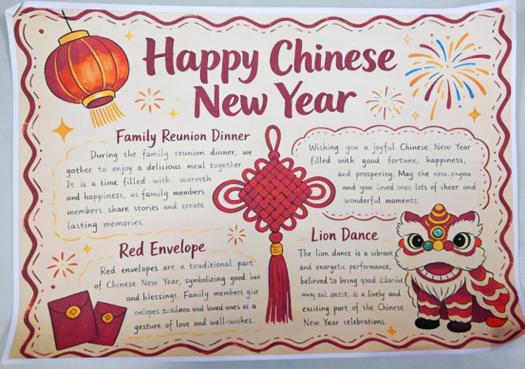 Happy Chinese
New Year
Family Reunion Dinner
During the family reunion dinner, we
gather to enjoy a delicious meal together.
It is a time filled with warmth
and happiness, as family members
members share stories and create
lasting memories.
Wishing you a joyful Chinese New Year
filled with good fortune, happiness,
and prosperity. May the new
and you loved ones lots of cheer and
wonderful moments.
Red Envelope
Red envelopes are a traditional part
of Chinese New Year, symbolizing good
and blessings. Family members give
and loved ones as a
gesture of love and well-wishes.
Lion Dance
The lion dance is a vibrant
and energetic performance,
believed to bring good
is a lively and
exciting part of the Chinese
New Year celebrations.